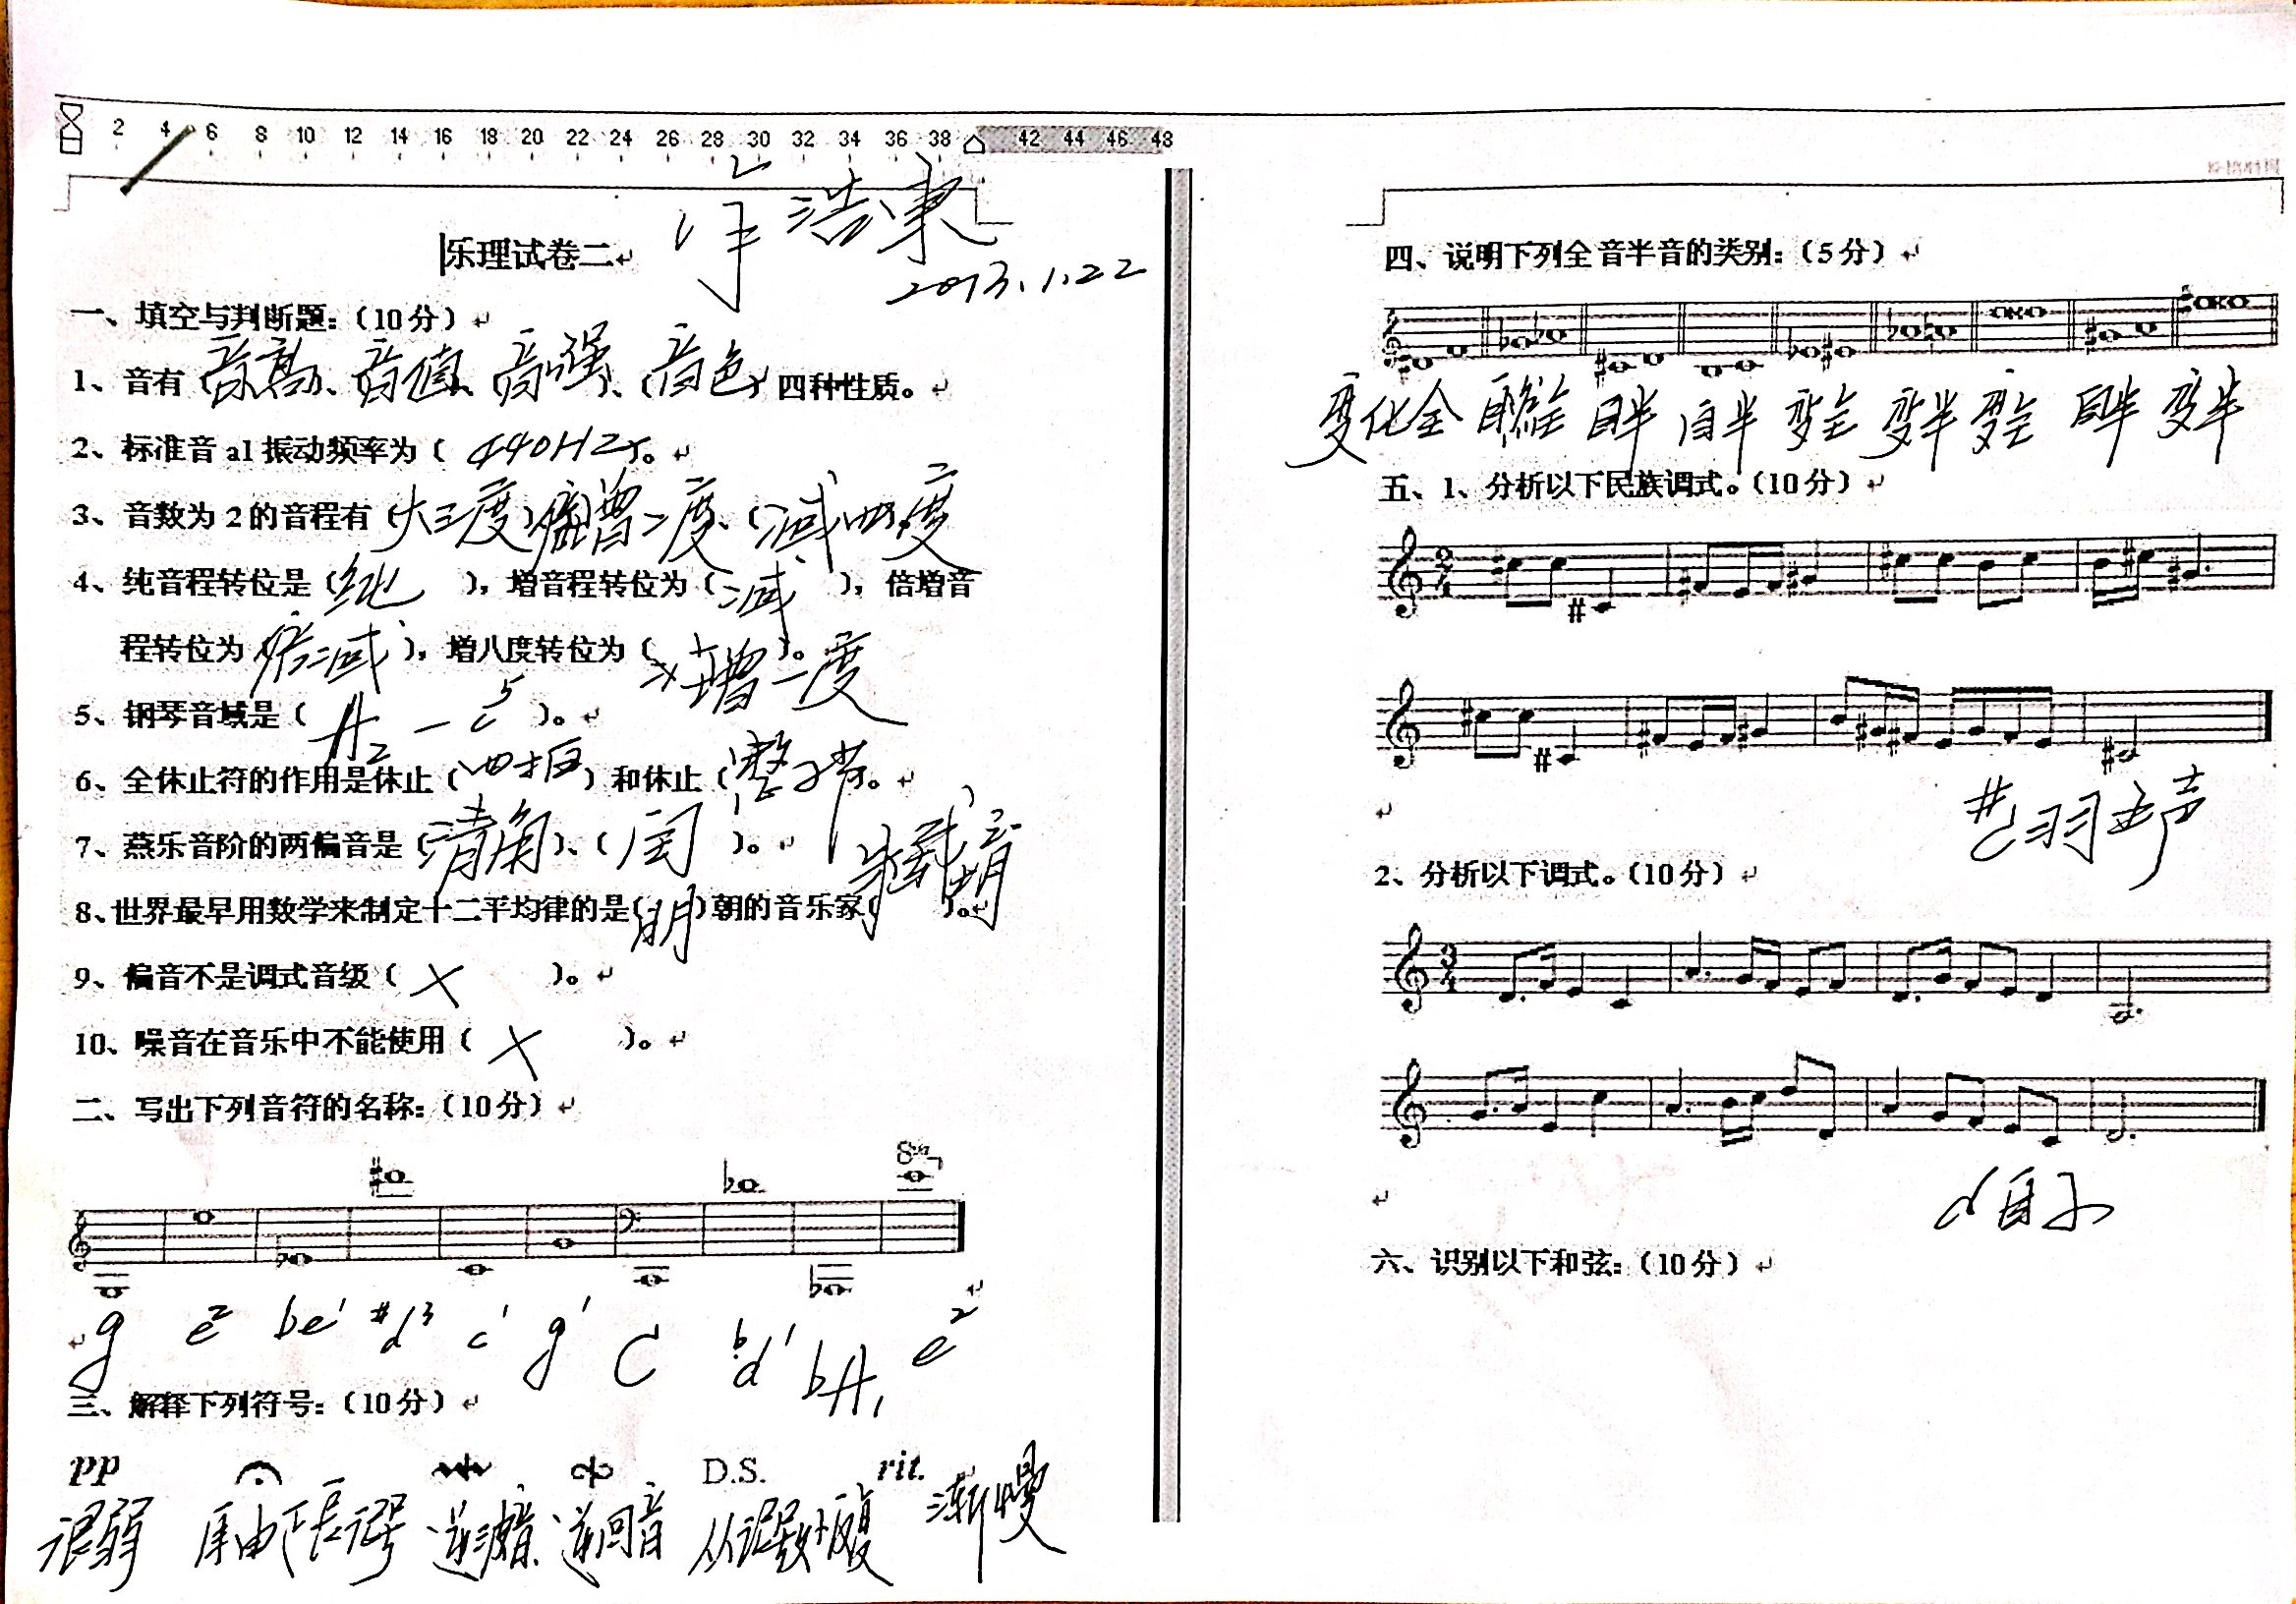 2 4 6 8 10 12 14 16 18 20 22 24 26 28 30 32 34 36 38 42 44 46 48
浩东
乐理试卷二
2013.1.22
一、填空与判断题:(10分)
1、音有(音高)、(音值)、(音强)、(音色)四种性质。
2、标准音a1振动频率为(440HZ)。
3、音数为2的音程有(大三度)、(倍增二度)、(减四度)
4、纯音程转位是(纯),增音程转位为(减),倍增音
程转位为(倍减),增八度转位为(×增一度)。
5、钢琴音域是(A₂—c⁵)。
6、全休止符的作用是休止(四拍)和休止(整小节)。
7、燕乐音阶的两偏音是(清角)、(闰)。
8、世界最早用数学来制定十二平均律的是(明)朝的音乐家(朱载堉)。
9、偏音不是调式音级(×)。
10、噪音在音乐中不能使用(×)。
二、写出下列音符的名称:(10分)
8va
g e² be¹ #d³ c¹ g¹ C bd¹ bA₁ e²
三、解释下列符号:(10分)
pp D.S. rit.
很弱 自由延长记号 逆波音 逆回音 从记号处反复 渐慢
四、说明下列全音半音的类别:(5分)
变化全 自然全 自半 自半 变全 变半 变全 自半 变半
五、1、分析以下民族调式。(10分)
2/4
#c羽五声
2、分析以下调式。(10分)
3/4
d自小
六、识别以下和弦:(10分)